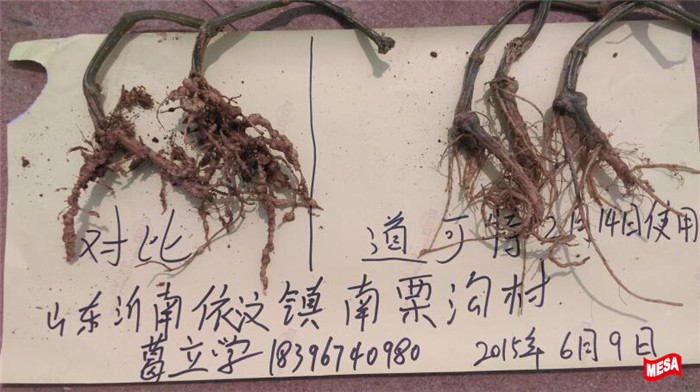 对比
道可特 2月14日使用
山东沂南依汶镇南栗沟村
葛立学 18396740980 2015年6月9日
MESA